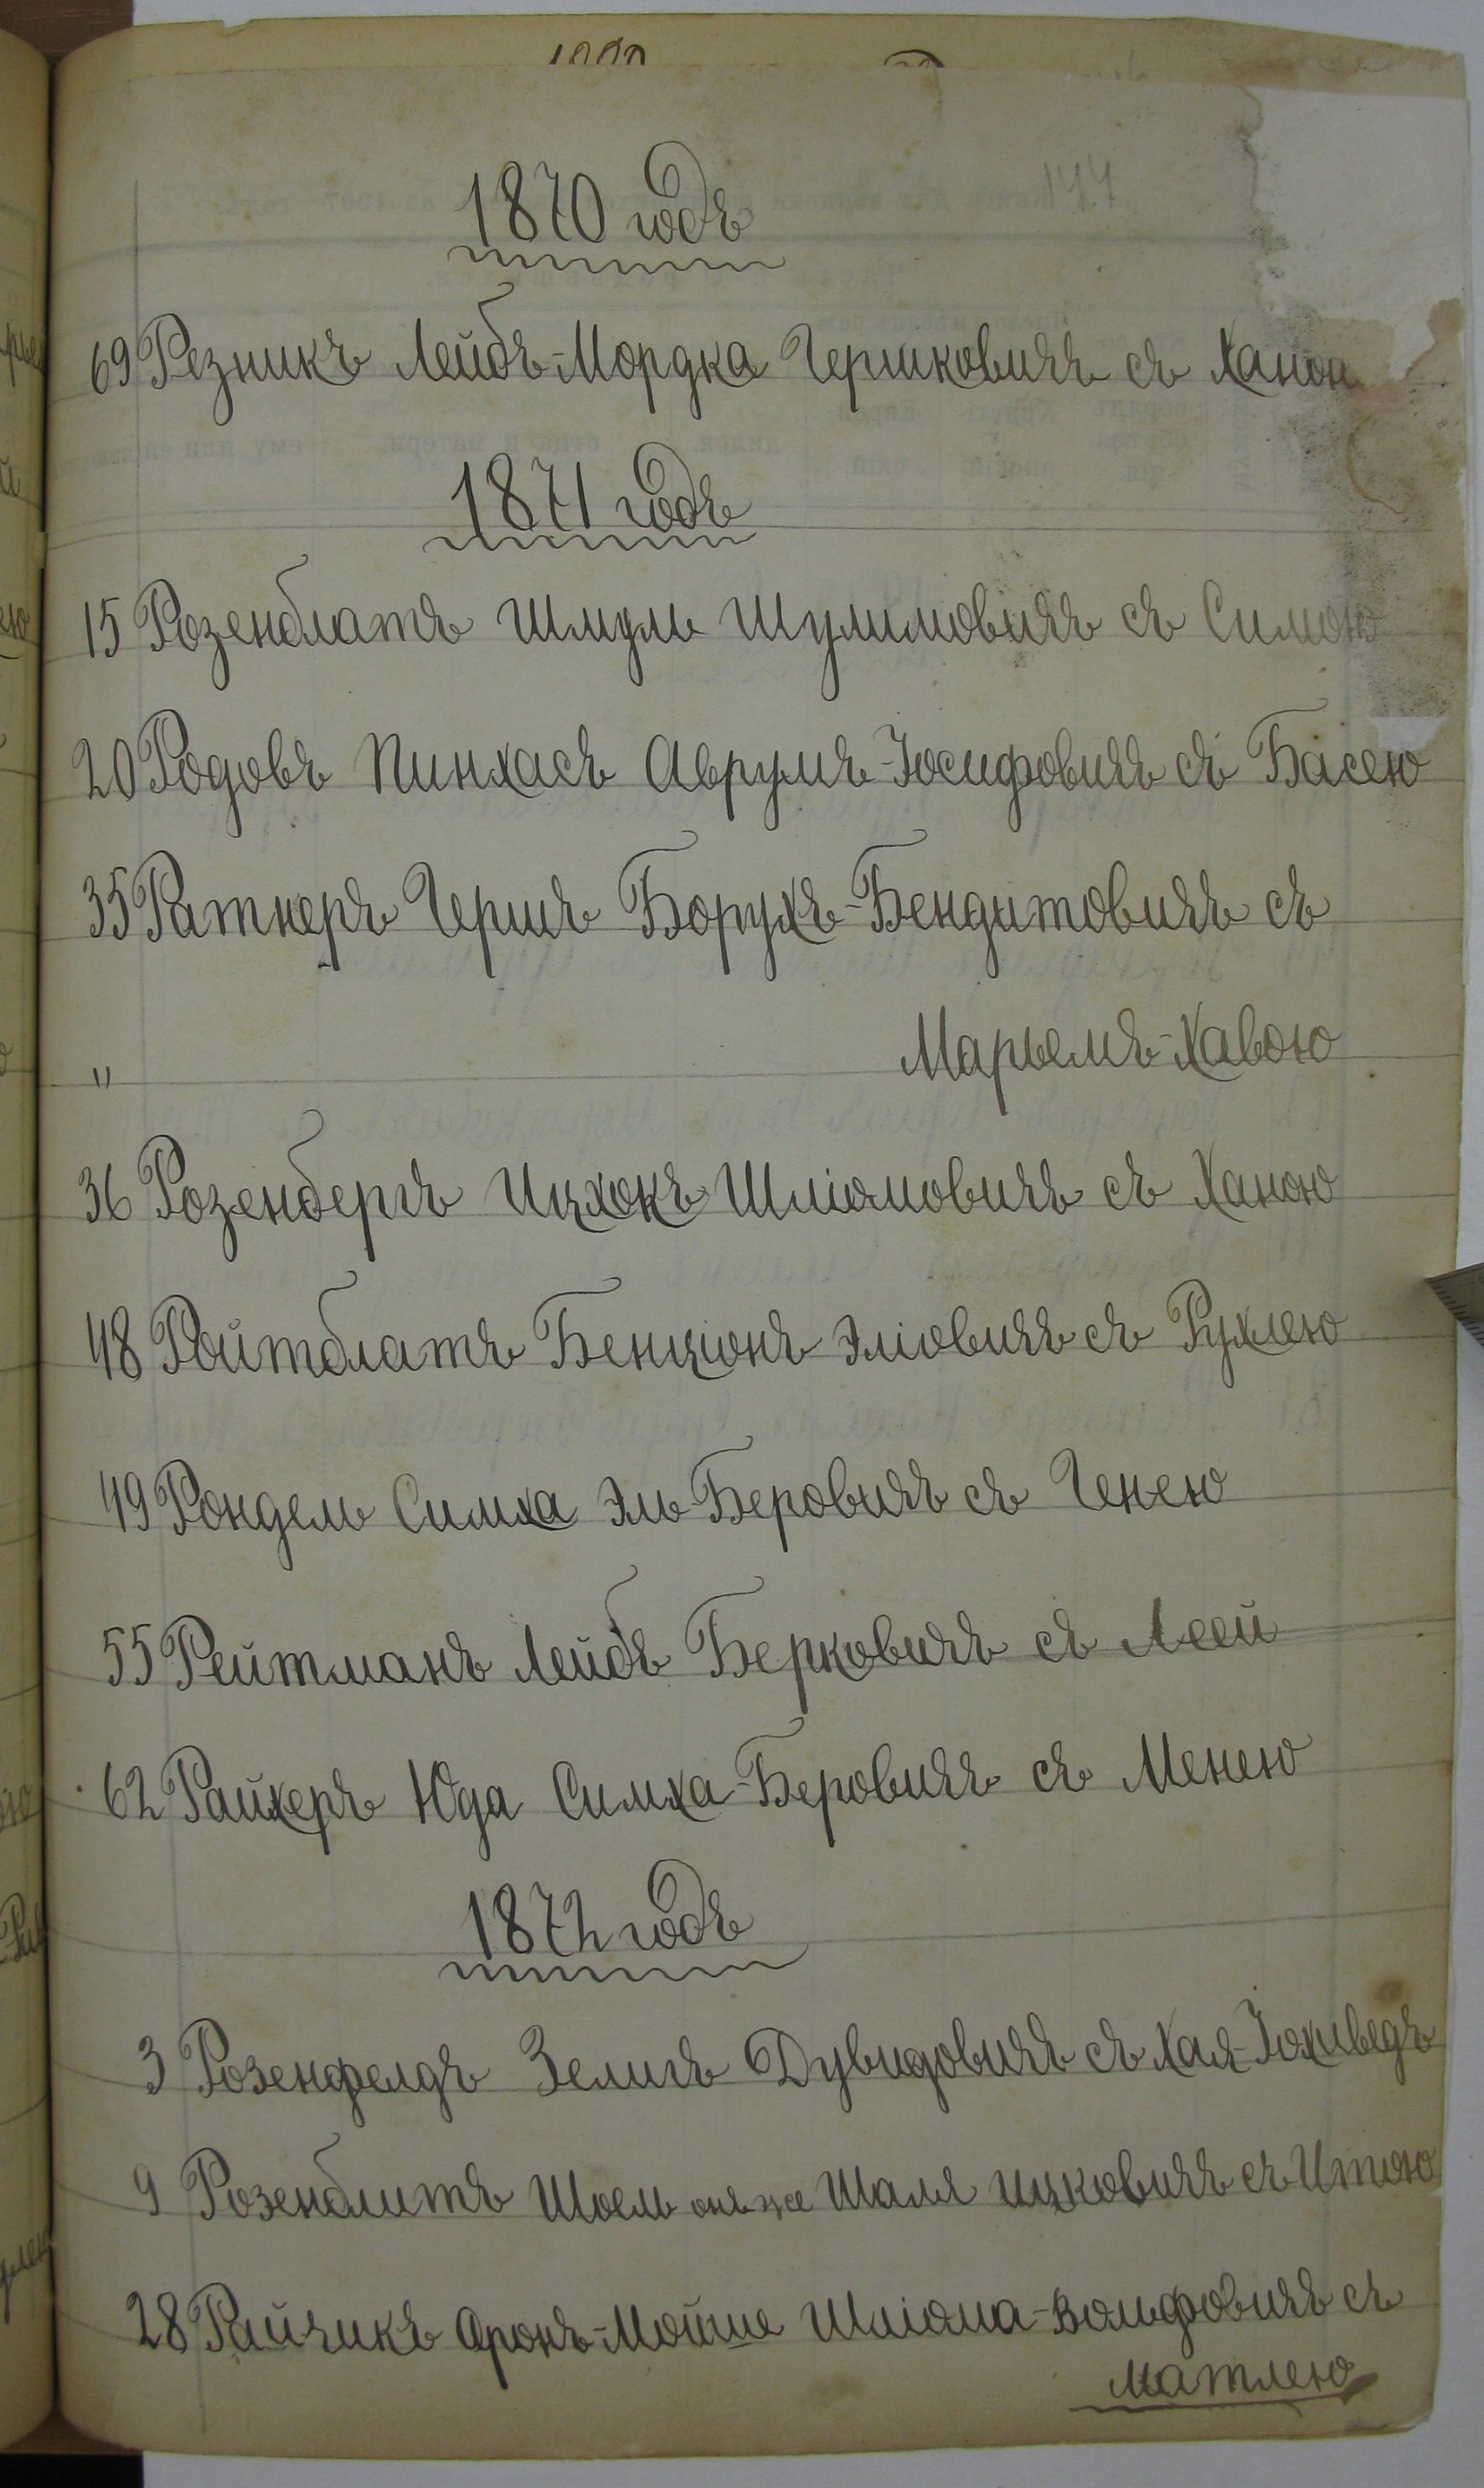 1870 годъ
69 Резникъ Лейбъ-Мордка Гершковичъ съ Ханою
1871 годъ
15 Розенблатъ Шмуль Шулимовичъ съ Симою
20 Родовъ Пинхасъ Аврумъ-Іосифовичъ съ Басею
35 Ратнеръ Гершъ Борухъ-Бендитовичъ съ
" Марьемъ-Хавою
36 Розенбергъ Ицхокъ Шліомовичъ съ Ханою
48 Ройтблатъ Бенціонъ Эліовичъ съ Рухлею
49 Рондель Симха Эль-Беровичъ съ Генею
55 Рейтманъ Лейбъ Берковичъ съ Леей
62 Райхеръ Юда Симха-Беровичъ съ Менею
1872 годъ
3 Розенфелдъ Зелигъ Дувидовичъ съ Хая-Іохиведъ
9 Розенблитъ Шоель онъ же Шаля Ицковичъ съ Итою
28 Райчикъ Аронъ-Мойше Шліома-Вольфовичъ съ
Матлею